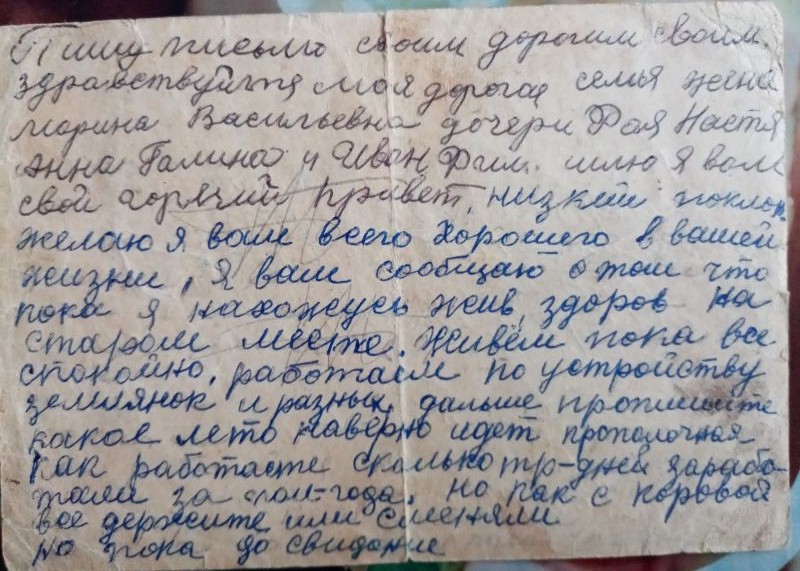 Пишу письмо своим дорогим своим.
здравствуйте моя дорогая семья жена
Марина Васильевна дочери Рая Настя
Анна Галина и Иван Фили. шлю я вам
свой горячий привет, низкий поклон
желаю я вам всего хорошего в вашей
жизни, я вам сообщаю о том что
пока я нахожусь жив, здоров на
старом месте. Живём пока все
спокойно. работаем по устройству
землянок и разных, дальше пропишите
какое лето наверно идет прополочная
как работаете сколько тр-дней зарабо-
тали за пол-года. но как с коровой
все держите или сменяли
но пока до свидание